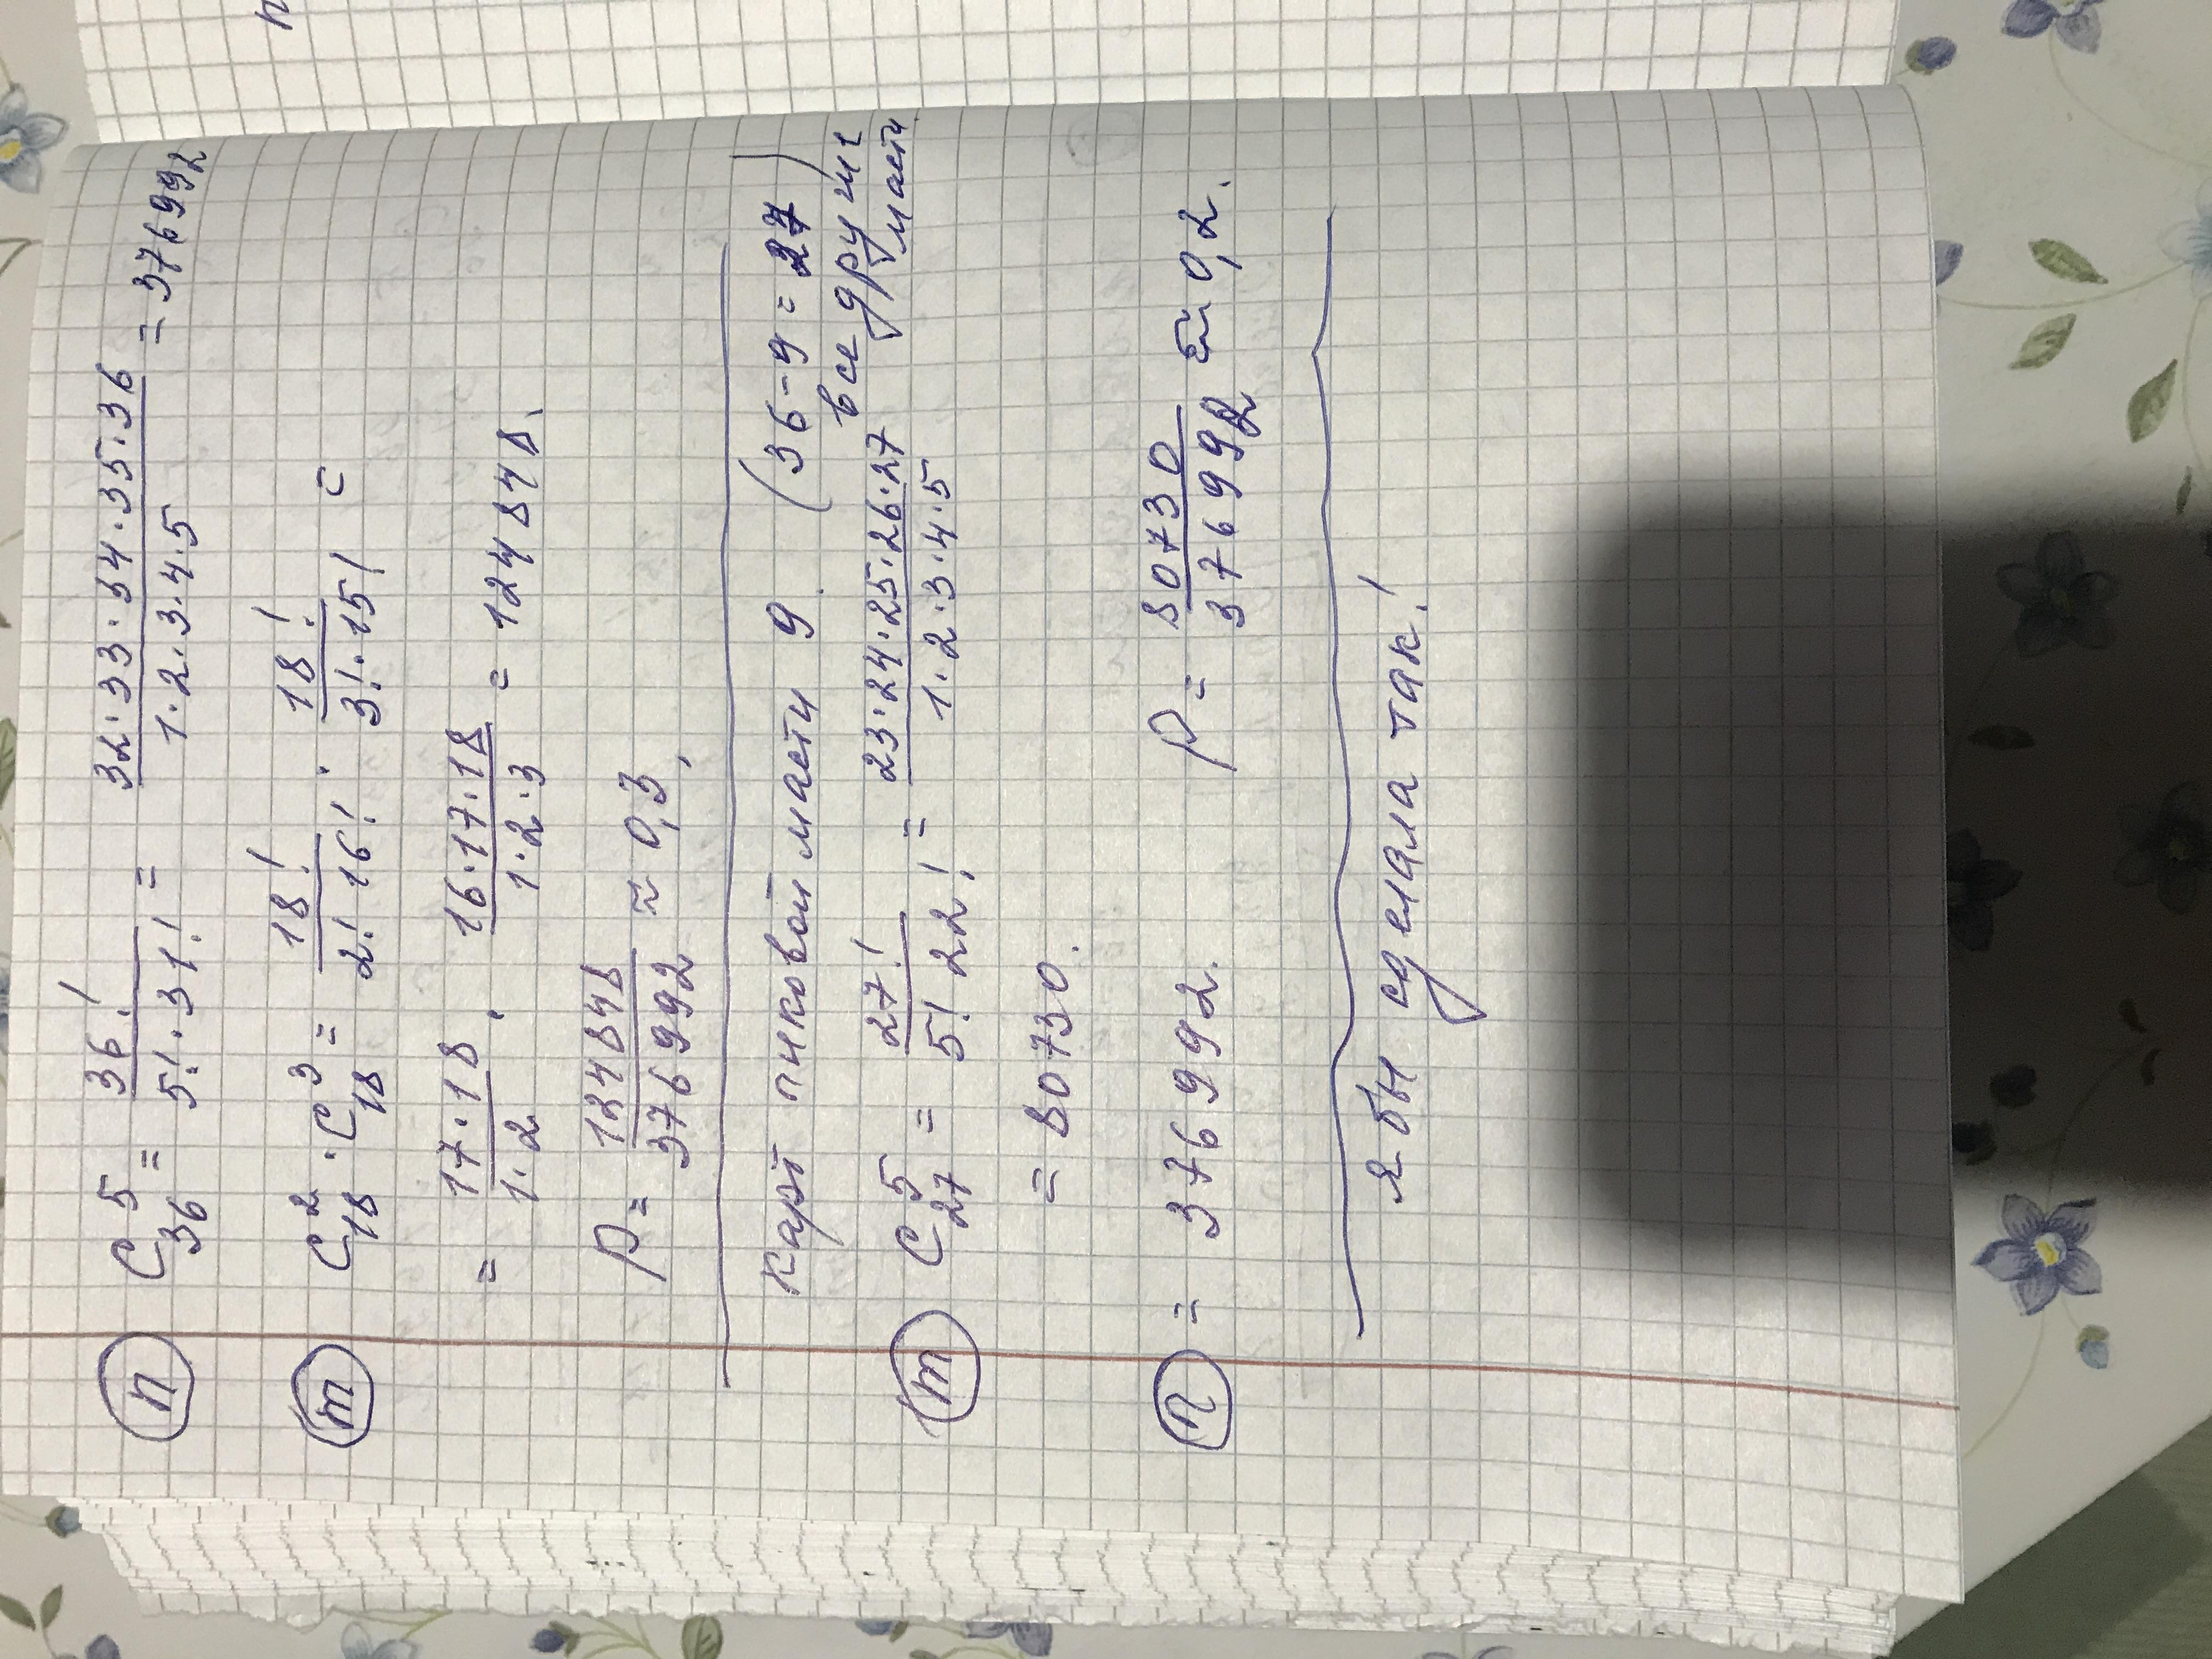 n C₃₆⁵ = 36! / 5!·31! = 32·33·34·35·36 / 1·2·3·4·5 = 376992
m C₁₈² · C₁₈³ = 18! / 2!16! · 18! / 3!·15! =
= 17·18 / 1·2 · 16·17·18 / 1·2·3 = 124848.
P = 124848 / 376992 ≈ 0,3,
Карт пиковой масти 9. (36-9=27)
все другие масти
m C₂₇⁵ = 27! / 5!22! = 23·24·25·26·27 / 1·2·3·4·5
= 80730.
n = 376992. P = 80730 / 376992 ≈ 0,2.
Я бы сделала так!